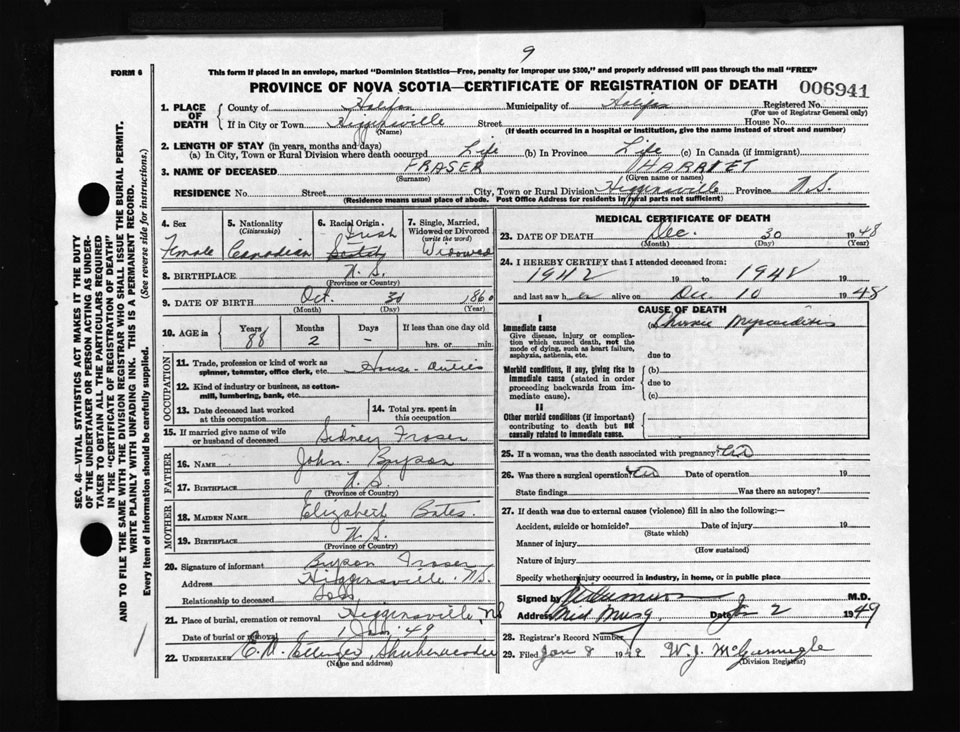 9
FORM 6
This form if placed in an envelope, marked "Dominion Statistics—Free, penalty for improper use $300," and properly addressed will pass through the mail "FREE"
PROVINCE OF NOVA SCOTIA—CERTIFICATE OF REGISTRATION OF DEATH 006941
SEC. 46—VITAL STATISTICS ACT MAKES IT THE DUTY
OF THE UNDERTAKER OR PERSON ACTING AS UNDER-
TAKER TO OBTAIN ALL THE PARTICULARS REQUIRED
IN THE "CERTIFICATE OF REGISTRATION OF DEATH"
AND TO FILE THE SAME WITH THE DIVISION REGISTRAR WHO SHALL ISSUE THE BURIAL PERMIT.
WRITE PLAINLY WITH UNFADING INK. THIS IS A PERMANENT RECORD.
Every item of information should be carefully supplied. (See reverse side for instructions.)
1. PLACE OF DEATH { County of Halifax Municipality of Halifax Registered No.
(For use of Registrar General only)
If in City or Town Higginsville Street House No.
(Name) (If death occurred in a hospital or institution, give the name instead of street and number)
2. LENGTH OF STAY (in years, months and days)
(a) In City, Town or Rural Division where death occurred Life (b) In Province Life (c) In Canada (if immigrant)
3. NAME OF DECEASED FRASER HARRIET
(Surname) (Given name or names)
RESIDENCE No. Street City, Town or Rural Division Higginsville Province N.S.
(Residence means usual place of abode. Post Office Address for residents in rural parts not sufficient)
4. Sex Female
5. Nationality (Citizenship) Canadian
6. Racial Origin Irish Scotch
7. Single, Married, Widowed or Divorced (write the word) Widowed
8. BIRTHPLACE N.S.
(Province or Country)
9. DATE OF BIRTH Oct. 30 1860
(Month) (Day) (Year)
10. AGE in Years 88 Months 2 Days - If less than one day old
hrs. or min.
OCCUPATION
11. Trade, profession or kind of work as House-duties
spinner, teamster, office clerk, etc.
12. Kind of industry or business, as cotton-
mill, lumbering, bank, etc.
13. Date deceased last worked at this occupation
14. Total yrs. spent in this occupation
15. If married give name of wife or husband of deceased Sidney Fraser
FATHER
16. NAME John Bryson
17. BIRTHPLACE N.S.
(Province of Country)
MOTHER
18. MAIDEN NAME Elizabeth Bates
19. BIRTHPLACE N.S.
(Province of Country)
20. Signature of informant Bryson Fraser
Address Higginsville N.S.
Relationship to deceased Son
21. Place of burial, cremation or removal Higginsville, NS
Date of burial or removal 1 Jan '49
22. UNDERTAKER E.D. Shubenacadie
(Name and address)
MEDICAL CERTIFICATE OF DEATH
23. DATE OF DEATH Dec. 30 1948
(Month) (Day) (Year)
24. I HEREBY CERTIFY that I attended deceased from:
1942 19 to 1948 19
and last saw her alive on Dec. 10 1948
CAUSE OF DEATH
I
Immediate cause Chronic Myocarditis
Give disease, injury or complica-
tion which caused death, not the
mode of dying, such as heart failure,
asphyxia, asthenia, etc. due to
Morbid conditions, if any, giving rise to (b)
immediate cause (stated in order due to
proceeding backwards from im-
mediate cause). (c)
II
Other morbid conditions (if important)
contributing to death but not
causally related to immediate cause.
25. If a woman, was the death associated with pregnancy? No
26. Was there a surgical operation? No Date of operation 19
State findings Was there an autopsy?
27. If death was due to external causes (violence) fill in also the following:—
Accident, suicide or homicide? Date of injury 19
(State which)
Manner of injury
(How sustained)
Nature of injury
Specify whether injury occurred in industry, in home, or in public place
Signed by M.D.
Address Mid Musq Date Jan 2 1949
28. Registrar's Record Number
29. Filed Jan 8 1949 W.J. McGunnigle
(Division Registrar)